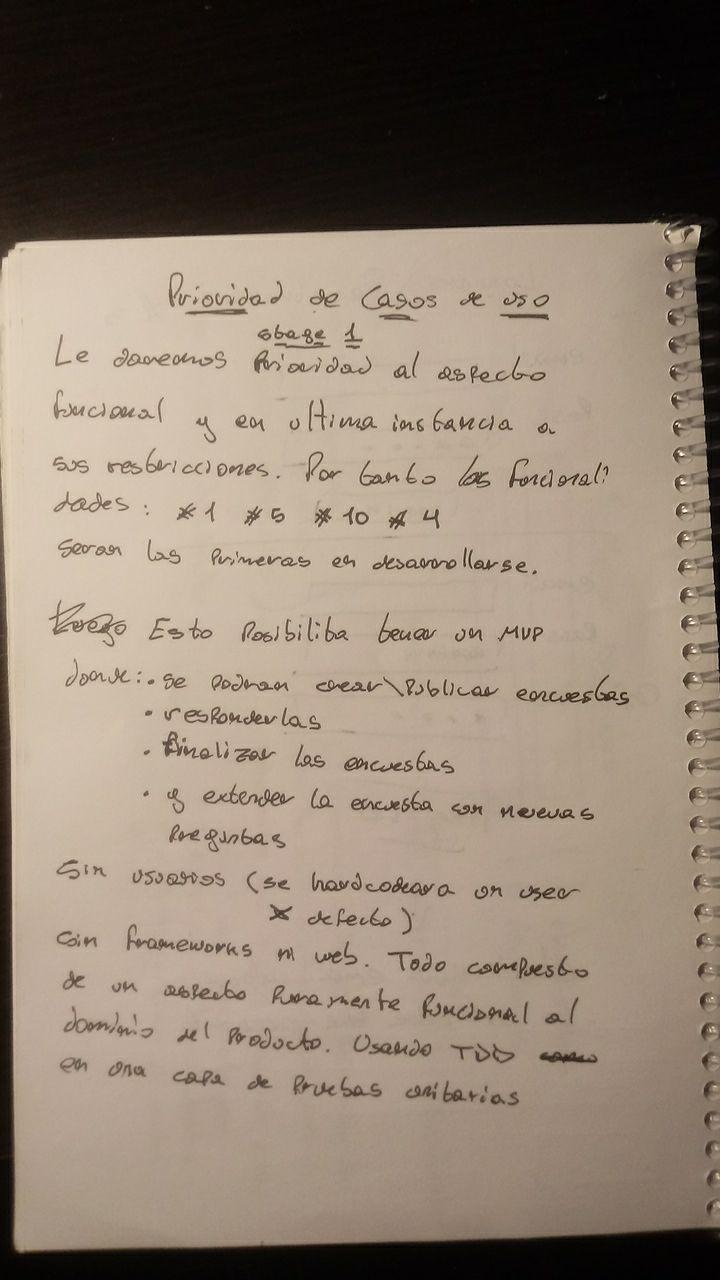 Prioridad de Casos de uso
stage 1
Le daremos Prioridad al aspecto
funcional y en ultima instancia a
sus restricciones. Por tanto las funcionali
dades: #1 #5 #10 #4
seran las Primeras en desarrollarse.
Luego Esto Posibilita tener un MVP
donde: • se podran crear\Publicar encuestas
• responderlas
• finalizar las encuestas
• y extender la encuesta con nuevas
Preguntas
Sin usuarios (se hardcodeara un user
X defecto)
Sin frameworks ni web. Todo compuesto
de un aspecto Puramente funcional al
dominio del Producto. Usando TDD
en una capa de Pruebas unitarias